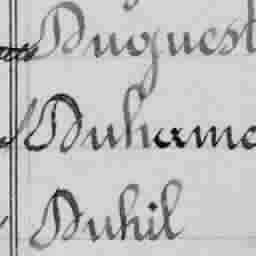 Duquest
Duhame
Duhil